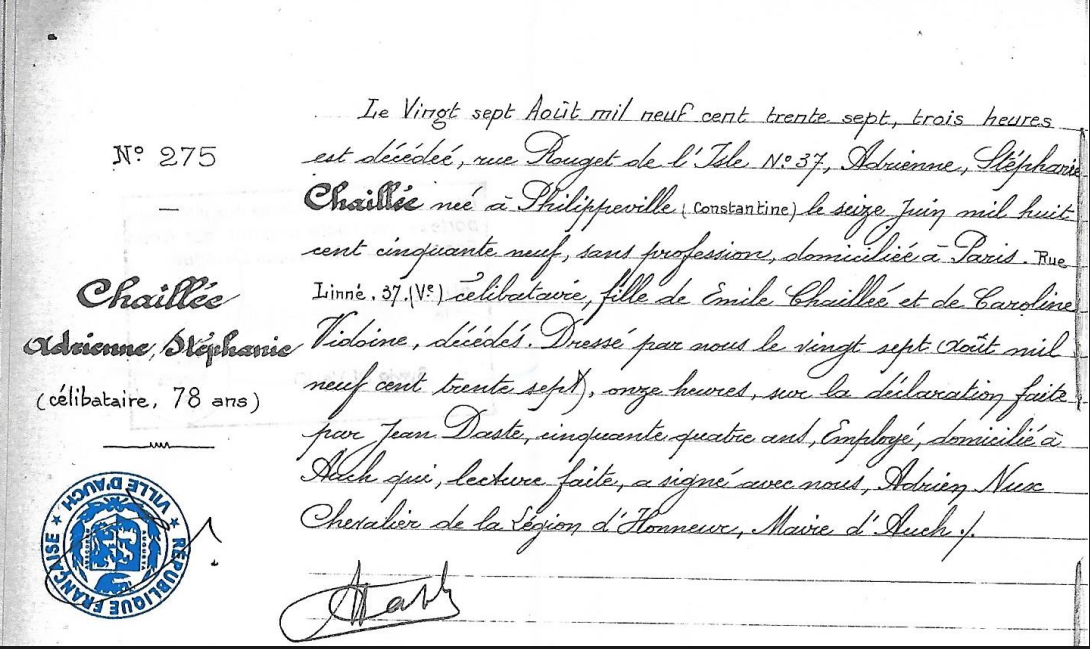 Le Vingt sept Août mil neuf cent trente sept, trois heures
N° 275
est décédée, rue Rouget de l'Isle N° 37, Adrienne, Stéphanie
Chaillée née à Philippeville (Constantine) le seize Juin mil huit
cent cinquante neuf, sans profession, domiciliée à Paris. Rue
Linné. 37. (Ve) célibataire, fille de Emile Chaillée et de Caroline
Vidoine, décédés. Dressé par nous le vingt sept Août mil
neuf cent trente sept, onze heures, sur la déclaration faite
par Jean Daste, cinquante quatre ans, Employé, domicilié à
Auch qui, lecture faite, a signé avec nous, Adrien Nux
Chevalier de la Légion d'Honneur, Maire d'Auch ./.
Chaillée
Adrienne, Stéphanie
(célibataire, 78 ans)
VILLE D'AUCH
RÉPUBLIQUE FRANÇAISE